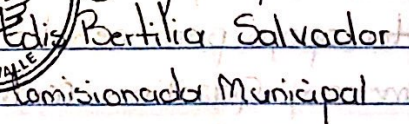 Edis Bertilia Salvador
Comisionada Municipal
VALLE